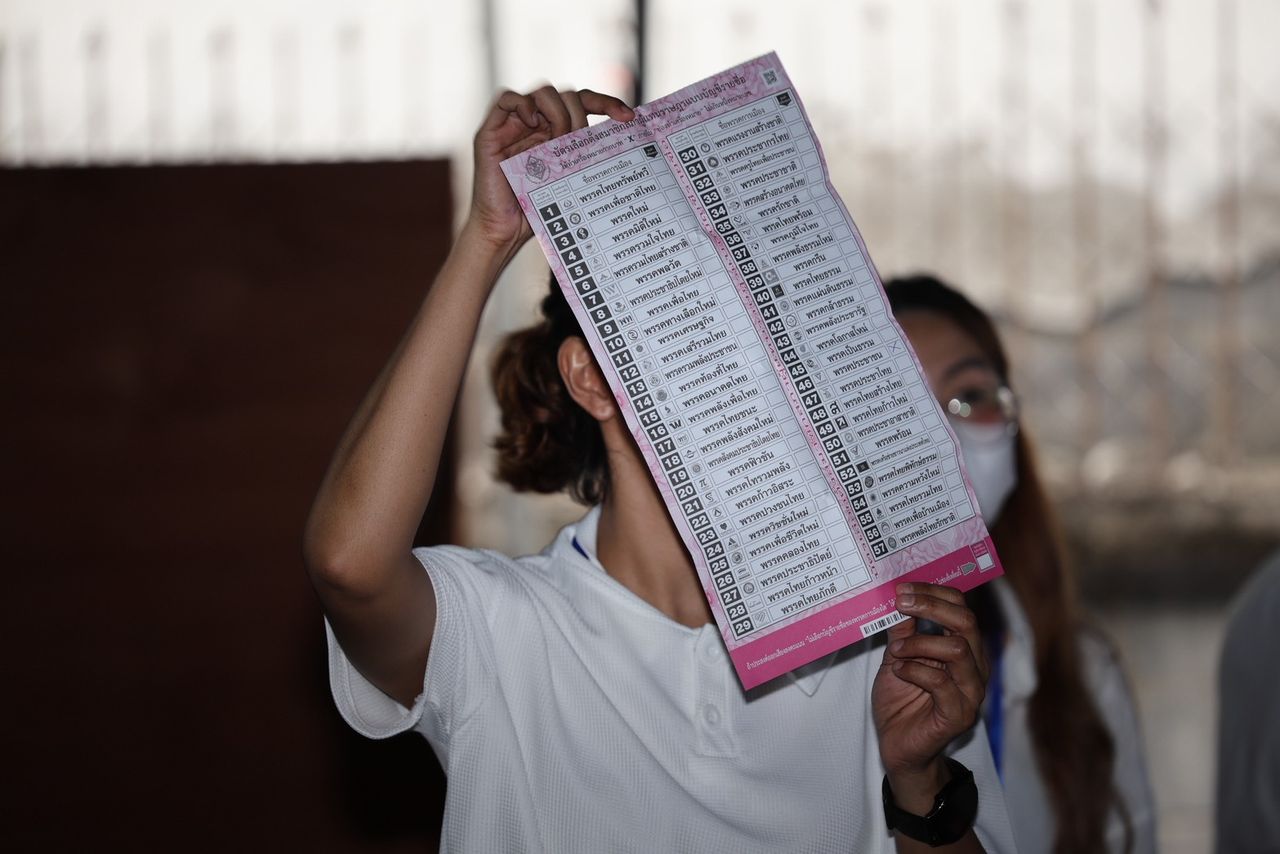 บัตรเลือกตั้งสมาชิกสภาผู้แทนราษฎรแบบบัญชีรายชื่อ
ให้ทำเครื่องหมายกากบาท "X"
ชื่อพรรคการเมือง
1 พรรคไทยทรัพย์ทวี
2 พรรคเพื่อชาติไทย
3 พรรคใหม่
4 พรรคมิติใหม่
5 พรรครวมใจไทย
6 พรรครวมไทยสร้างชาติ
7 พรรคพลวัต
8 พรรคประชาธิปไตยใหม่
9 พรรคเพื่อไทย
10 พรรคทางเลือกใหม่
11 พรรคเศรษฐกิจ
12 พรรคเสรีรวมไทย
13 พรรครวมพลังประชาชน
14 พรรคท้องที่ไทย
15 พรรคอนาคตไทย
16 พรรคพลังเพื่อไทย
17 พรรคไทยชนะ
18 พรรคพลังสังคมใหม่
19 พรรคสังคมประชาธิปไตยไทย
20 พรรคฟิวชัน
21 พรรคไทรวมพลัง
22 พรรคก้าวอิสระ
23 พรรคปวงชนไทย
24 พรรควิชชั่นใหม่
25 พรรคเพื่อชีวิตใหม่
26 พรรคคลองไทย
27 พรรคประชาธิปัตย์
28 พรรคไทยก้าวหน้า
29 พรรคไทยภักดี
ชื่อพรรคการเมือง
30 พรรคแรงงานสร้างชาติ
31 พรรคประชากรไทย
32 พรรคครูไทยเพื่อประชาชน
33 พรรคประชาชาติ
34 พรรคสร้างอนาคตไทย
35 พรรครักชาติ
36 พรรคไทยพร้อม
37 พรรคภูมิใจไทย
38 พรรคพลังธรรมใหม่
39 พรรคกรีน
40 พรรคไทยธรรม
41 พรรคแผ่นดินธรรม
42 พรรคกล้าธรรม
43 พรรคพลังประชารัฐ
44 พรรคโอกาสใหม่
45 พรรคเป็นธรรม
46 พรรคประชาชน
47 พรรคประชาไทย
48 พรรคไทยสร้างไทย
49 พรรคไทยก้าวใหม่
50 พรรคประชาอาสาชาติ
51 พรรคพร้อม
52 พรรคเครือข่ายชาวนาแห่งประเทศไทย
53 พรรคไทยพิทักษ์ธรรม
54 พรรคความหวังใหม่
55 พรรคไทยรวมไทย
56 พรรคเพื่อบ้านเมือง
57 พรรคพลังไทยรักชาติ
ถ้าประสงค์ออกเสียงลงคะแนน "ไม่เลือกบัญชีรายชื่อของพรรคการเมืองใด"